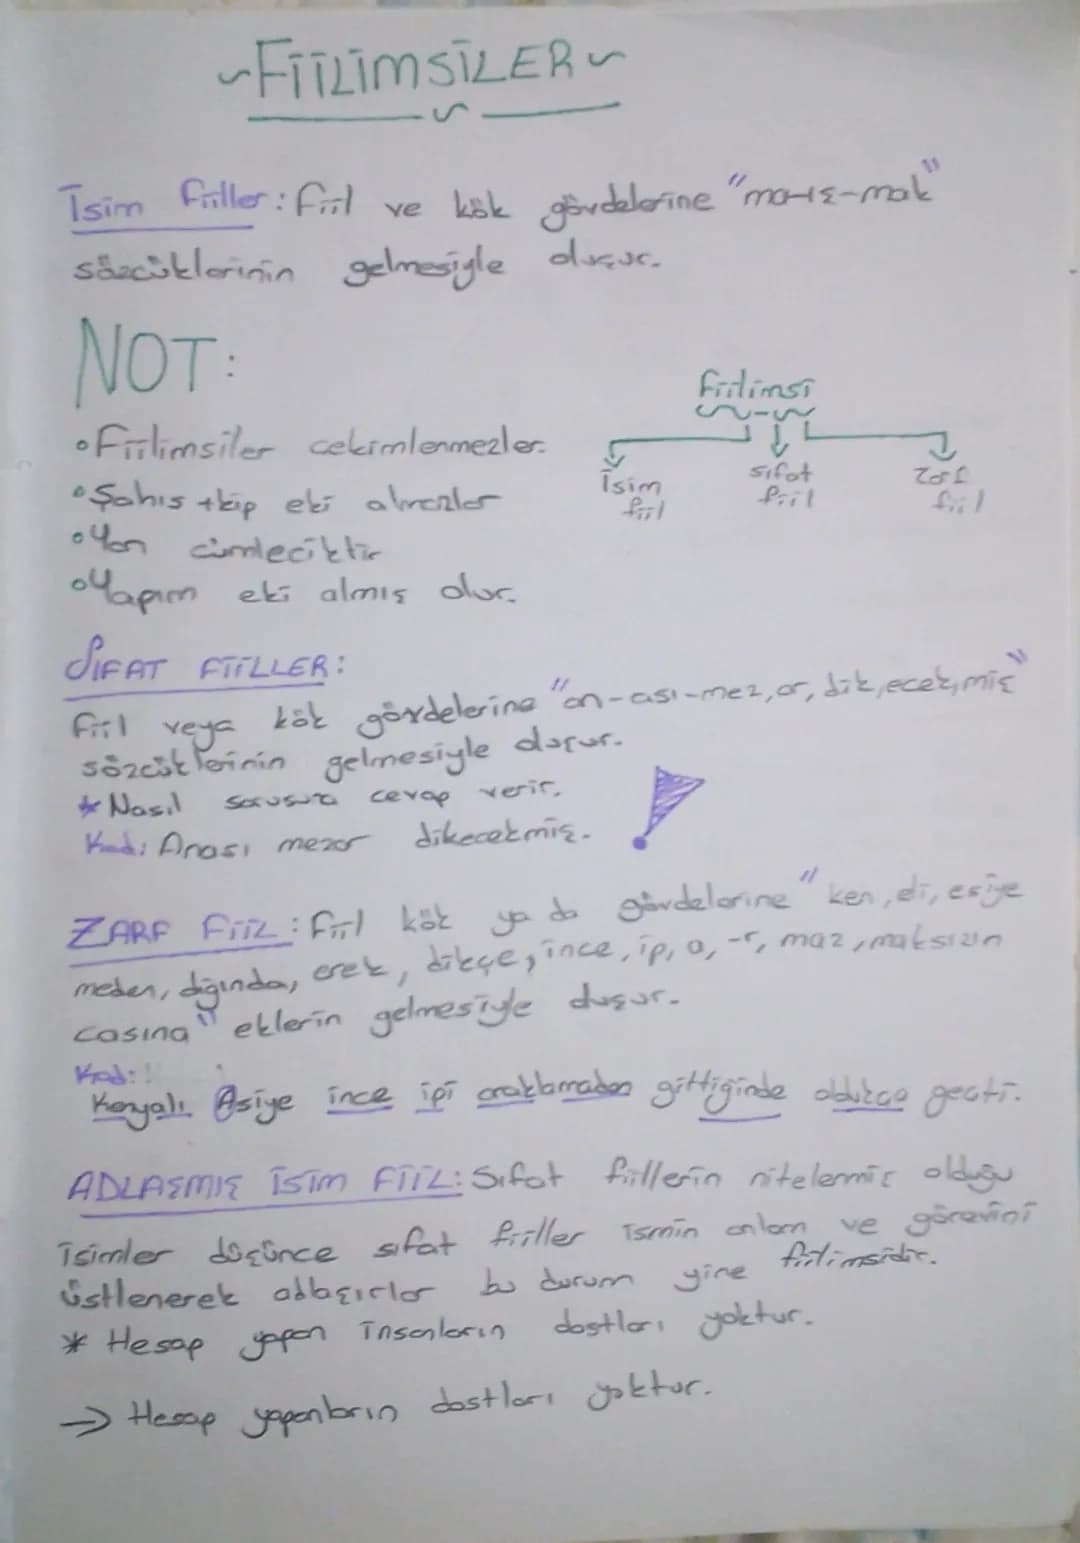 ~FİİLİMSİLER~
İsim fiiller: fiil ve kök gövdelerine "ma-ış-mak"
sözcüklerinin gelmesiyle oluşur.
NOT:
•Fiilimsiler cekimlenmezler.
•Şahıs +kip eki almazlar
•Yan cümleciktir
•Yapım eki almış olur.
fiilimsi
İsim fiil
sıfat fiil
Zarf fiil
SIFAT FİİLLER:
fiil veya kök gövdelerine "an-ası-mez, ar, dik, ecek, miş"
sözcüklerinin gelmesiyle oluşur.
* Nasıl sorusuna cevap verir.
Kod: Anası mezar dikecekmiş.
ZARF FİİL: fiil kök ya da gövdelerine "ken, eli, esiye
meden, dığında, erek, dikçe, ince, ip, a, -r, maz, maksızın
casına" eklerin gelmesiyle oluşur.
Kod:
Konyalı Asiye ince ipi araklamadan gittiğinde oldukça gecti.
ADLAŞMIŞ İSİM FİİL: Sıfat fiillerin nitelemiş olduğu
isimler düşünce sıfat fiiller ismin anlam ve görevini
üstlenerek adlaşırlar bu durum yine fiilimsidir.
* Hesap yapan insanların dostları yoktur.
→ Hesap yapanların dostları yoktur.